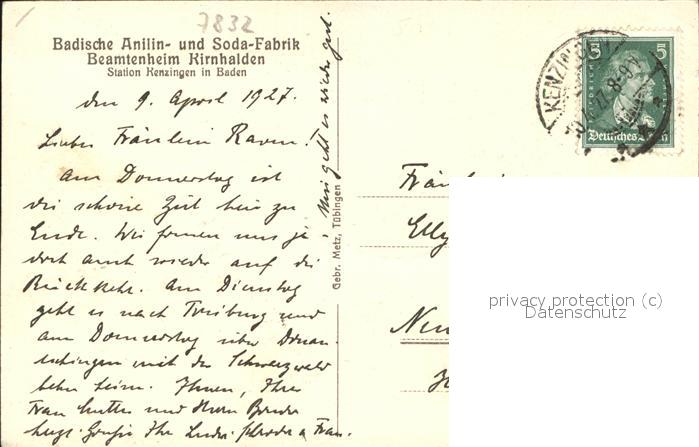 7832
Badische Anilin- und Soda-Fabrik
Beamtenheim Kirnhalden
Station Kenzingen in Baden
den 9. April 1927.
Liebes Fräulein Raven!
Am Donnerstag ist
die schöne Zeit hier zu
Ende. Wir freuen uns je-
doch auch wieder auf die
Rückkehr. Am Dienstag
geht es nach Triburg und
am Donnerstag über Donau-
eschingen mit der Schwarzwald
bahn heim. Ihnen, Ihrer
Frau Mutter und Herrn Bruder
herzl. Grüße Ihr
u. Frau.
Mir geht es wieder gut.
Gebr. Metz, Tübingen
KENZINGEN
5 5
Deutsches Reich
Fräulein
Elly
privacy protection (c)
Datenschutz